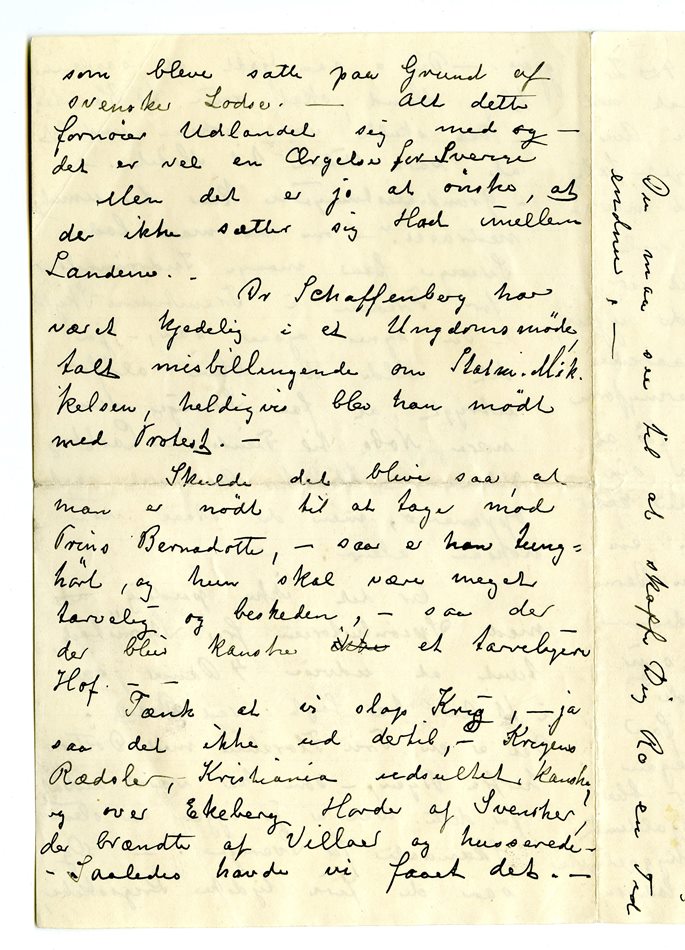 som bleve satte paa Grund af
svenske Lodse. — Alt dette
fornøier Udlandet sig med og —
det er vel en Ærgelse for Sverige
Men det er jo at önske, at
der ikke sætter sig Had imellem
Landene. -
Dr Scharffenberg har
været kjedelig i et Ungdomsmøde,
talt misbilligende om Statsm. Mik-
kelsen, heldigvis blev han mødt
med Protest. —
Skulde det blive saa, at
man er nödt til at tage mod
Prins Bernadotte, — saa er han tung=
hört, og hun skal være meget
tarvelig og beskeden, — saa der
der blir kanske ikke et tarveligere
Hof. —
Tænk at vi slap Krig, — ja
saa det ikke ud dertil, — Krigens
Rædsler, — Kristiania udsultet kanske,
og over Ekeberg Horde af Svensker,
der brændte af Villaer og husserede —
— Saaledes havde vi faaet det. —
Du maa see til at skaffe Dig Ro en Tid
endnu. —